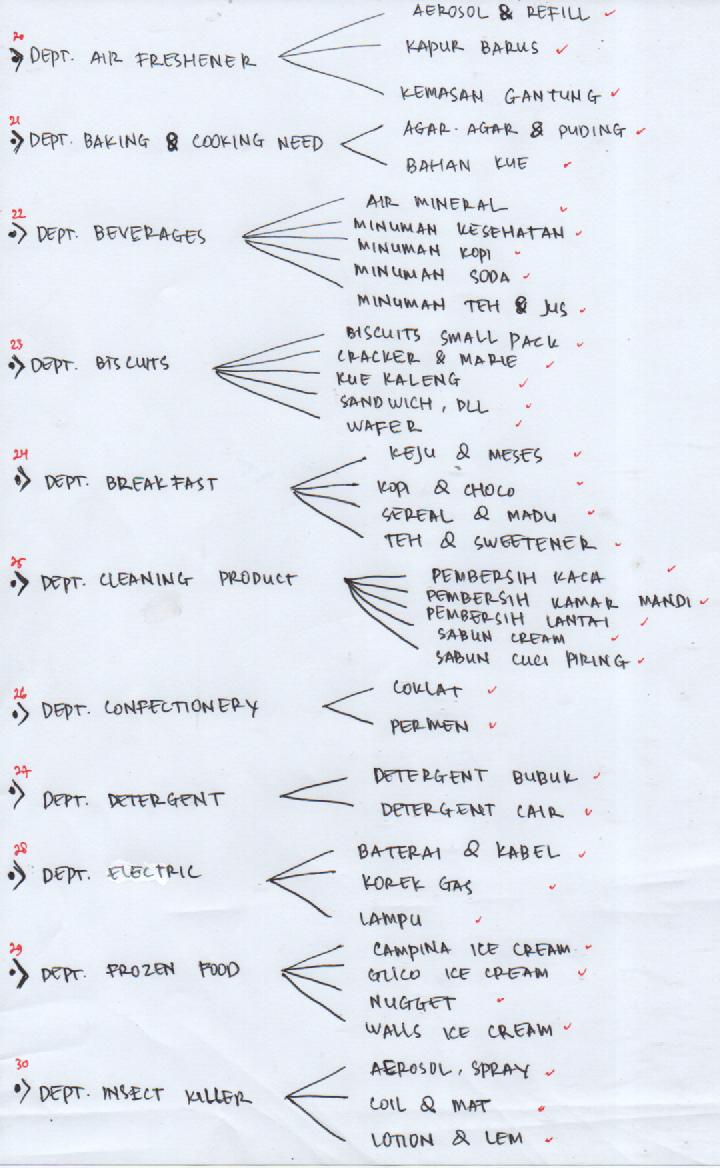 20
DEPT. AIR FRESHENER
AEROSOL & REFILL
KAPUR BARUS
KEMASAN GANTUNG
21
DEPT. BAKING & COOKING NEED
AGAR-AGAR & PUDING
BAHAN KUE
22
DEPT. BEVERAGES
AIR MINERAL
MINUMAN KESEHATAN
MINUMAN KOPI
MINUMAN SODA
MINUMAN TEH & JUS
23
DEPT. BISCUITS
BISCUITS SMALL PACK
CRACKER & MARIE
KUE KALENG
SANDWICH, DLL
WAFER
24
DEPT. BREAKFAST
KEJU & MESES
KOPI & CHOCO
SEREAL & MADU
TEH & SWEETENER
25
DEPT. CLEANING PRODUCT
PEMBERSIH KACA
PEMBERSIH KAMAR MANDI
PEMBERSIH LANTAI
SABUN CREAM
SABUN CUCI PIRING
26
DEPT. CONFECTIONERY
COKLAT
PERMEN
27
DEPT. DETERGENT
DETERGENT BUBUK
DETERGENT CAIR
28
DEPT. ELECTRIC
BATERAI & KABEL
KOREK GAS
LAMPU
29
DEPT. FROZEN FOOD
CAMPINA ICE CREAM
GLICO ICE CREAM
NUGGET
WALLS ICE CREAM
30
DEPT. INSECT KILLER
AEROSOL, SPRAY
COIL & MAT
LOTION & LEM